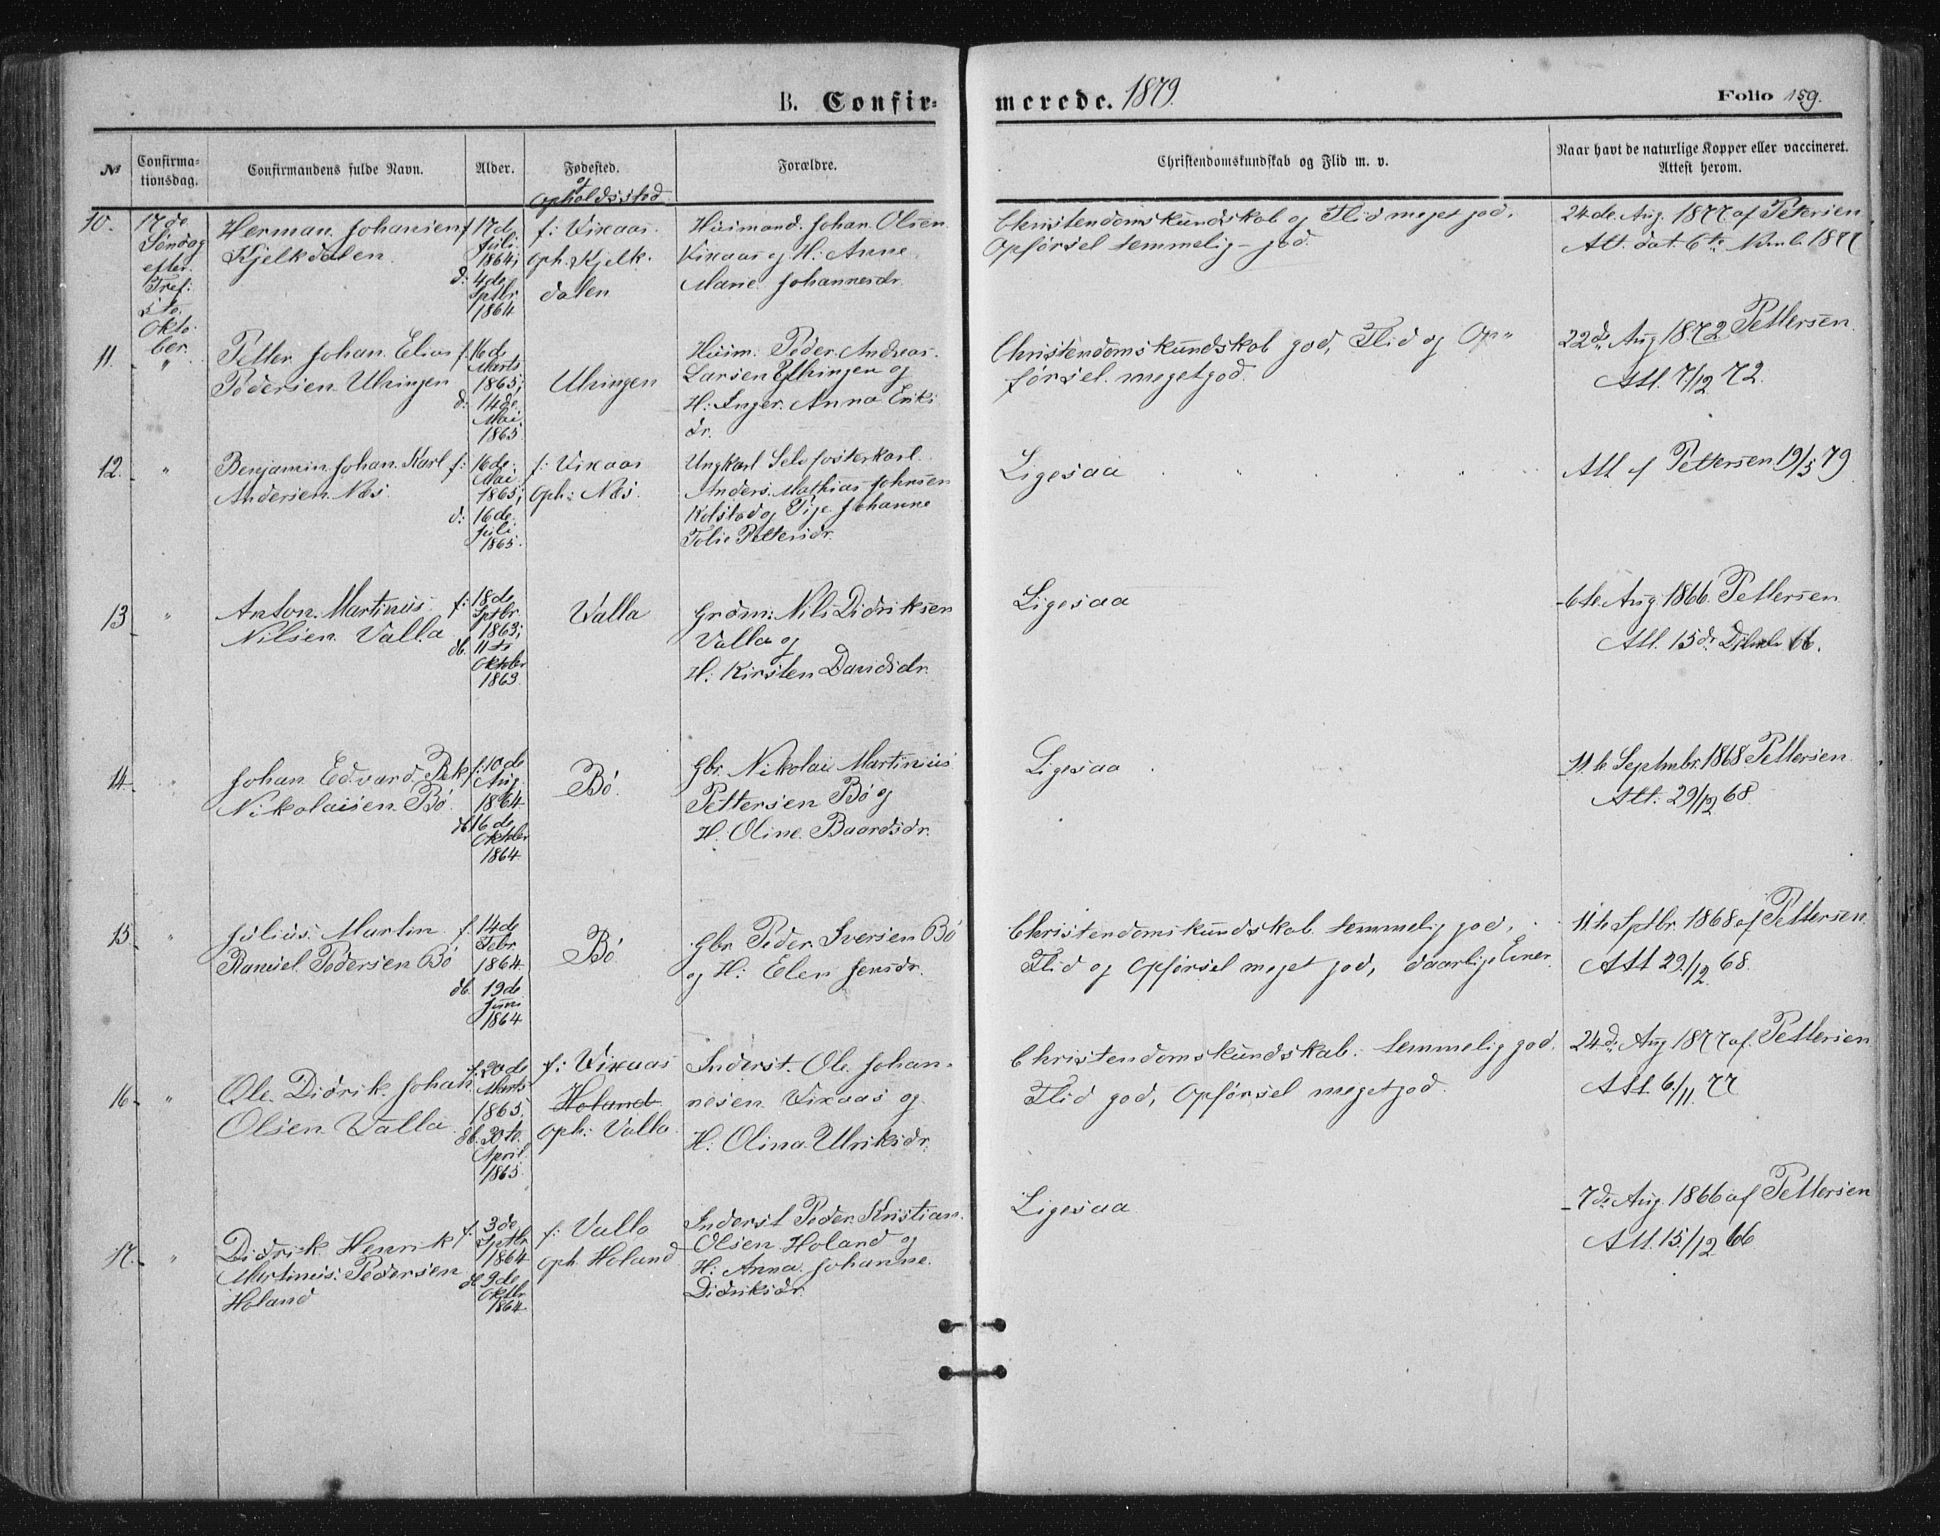 B. Confir-
merede. 1879.
Folio 159.
№
Confirma-
tionsdag.
Confirmandens fulde Navn.
Alder.
Fødested.
og
Opholdssted
Forældre.
Christendomskundskab og Flid m. v.
Naar havt de naturlige Kopper eller vaccineret.
Attest herom.
10.
17de
Søndag
efter
Tref:
5te
Okto-
ber.
Herman Johansen
Kjelkdalen
f. 17de
Juli
1864;
d: 4de
Sptbr
1864
f: Vixaas.
Oph: Kjelk-
dalen
Huusmand Johan Olsen
Vixaas og H: Anne
Marie Johannesdr.
Christendomskundskab og Flid meget god,
Opførsel temmelig god.
24de Aug. 1877 af Pettersen
Att. dat. 6te 1877
11.
"
Petter Johan Elias
Pedersen Ulvingen
f. 16de
Marts
1865;
d: 14de
Mai
1865
Ulvingen
Huusm: Peder Andreas
Larsen Ulvingen og
H: Inger Anna Eriks
dr.
Christendomskundskab god, Flid og Op-
førsel meget god.
22de Aug 1872 Pettersen.
Att. 7/12 72.
12.
"
Benjamin Johan Karl
Andersen Næs
f: 16de
Mai
1865;
d: 16de
Juli
1865.
f: Vixaas
Oph: Næs.
Ungkarl Selvfosterkarl
Anders Mathias Johnsen
og Pige Johanne
Tolie Pettersdr.
Ligesaa
Att. f Pettersen 19/5 79
13
"
Anton Martinus
Nilsen Valla
f: 18de
Sptbr
1863;
db. 11te
Oktober
1863
Valla
Grdm: Nils Didriksen
Valla og
H: Kirsten Davidsdr.
Ligesaa
6te Aug 1866. Pettersen
Att. 15de 66.
14
"
Johan Edvard Pek
Nikolaisen Bö
f. 10de
Aug
1864
db 16de
Oktober
1864
Bö.
Gbr. Nikolai Martinius
Pettersen Bö og
H. Oline Baardsdr.
Ligesaa
11te Septembr. 1868 Pettersen
Att: 29/12 68.
15
"
Julius Martin
Pedersen Bö
f. 14de
Febr.
1864
db. 19de
Juni
1864
Bö
Gbr Peder Iversen Bö
og H: Elen Jensdr.
Christendomskundskab temmelig god,
Flid og Opførsel meget god, daarlige Evner.
11te Sptbr. 1868 af Pettersen
Att 29/12 68.
16
"
Ole Didrik Johan
Olsen Valla
f. 20de
Marts
1865;
db. 30te
April
1865
f: Vixaas
Holand
Oph: Valla.
Inderst. Ole Johan-
nesen Vixaas og
H: Olina Ulriksdr.
Christendomskundskab temmelig god.
Flid god, Opførsel meget god.
24de Aug 1877 af Pettersen
Att 6/11 77
17.
"
Didrik Henrik
Martinus Pedersen
Holand
f. 3de
Sptbr
1864
db 9de
Oktbr
1864
f: Valla
oph. Holand
Inderst Peder Kristian
Olsen Holand og
H: Anna Johanne
Didriksdr
Ligesaa
7de Aug. 1866 af Pettersen
Att. 15/12 66